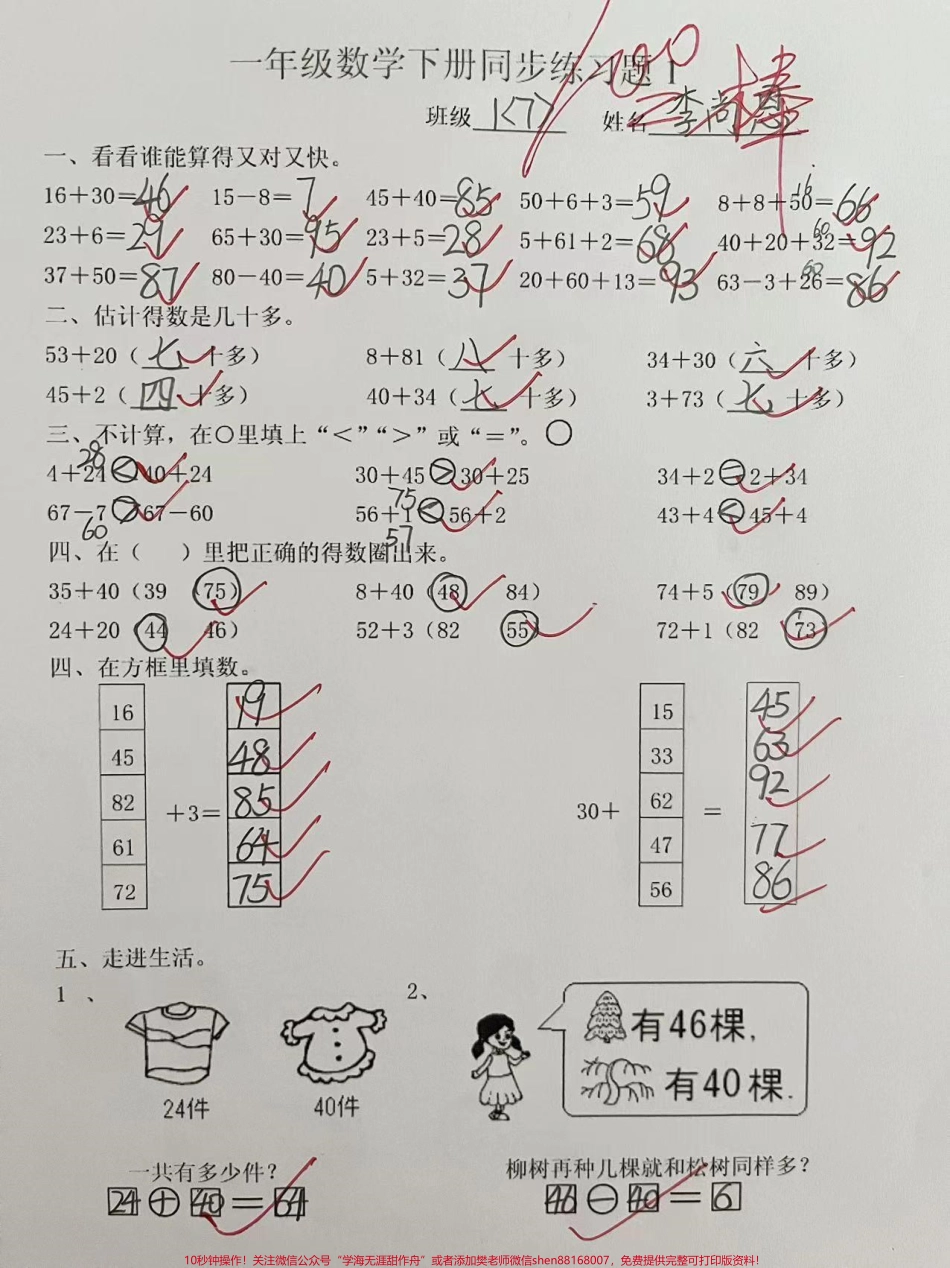 一年级数学下册同步练习题1
100
三棒
班级 1<7> 姓名 李尚恩
一、看看谁能算得又对又快。
16+30=46 15-8=7 45+40=85 50+6+3=59 8+8+50=66
16
23+6=29 65+30=95 23+5=28 5+61+2=68 40+20+32=92
60
37+50=87 80-40=40 5+32=37 20+60+13=93 63-3+26=86
60
二、估计得数是几十多。
53+20（七十多） 8+81（八十多） 34+30（六十多）
45+2（四十多） 40+34（七十多） 3+73（七十多）
三、不计算，在○里填上“<”“>”或“=”。○
28
4+24<40+24 30+45>30+25 34+2=2+34
75
67-7>67-60 56+1<56+2 43+4<45+4
60 57
四、在（ ）里把正确的得数圈出来。
35+40（39 75） 8+40（48 84） 74+5（79 89）
24+20（44 46） 52+3（82 55） 72+1（82 73）
四、在方框里填数。
16 19 15 45
45 48 33 63
82 +3= 85 30+ 62 = 92
61 64 47 77
72 75 56 86
五、走进生活。
1、 2、
有46棵，
有40棵.
24件 40件
一共有多少件？ 柳树再种几棵就和松树同样多？
24+40=64 46-40=6
10秒钟操作！关注微信公众号“学海无涯甜作舟”或者添加樊老师微信shen88168007，免费提供完整可打印版资料！